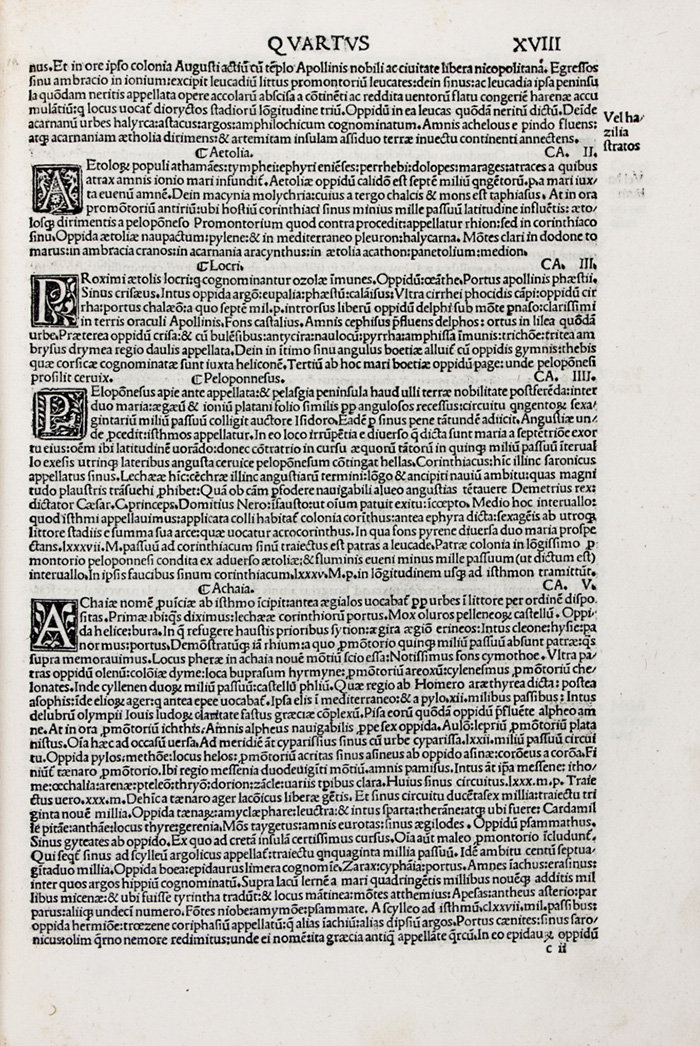 QVARTVS XVIII
nus. Et in ore ipso colonia Augusti actiū cū tēplo Apollinis nobili ac ciuitate libera nicopolitana. Egressos
sinu ambracio in ionium: excipit leucadiū littus promontoriū leucates: dein sinus: ac leucadia ipsa peninsu
la quōdam neritis appellata opere accolarū abscisa a cōtinēti ac reddita uentorū flatu congeriē harenæ accu
mulātiū: q locus uocat̄ dioryctos stadiorū lōgitudine triū. Oppidū in ea leucas quōdā neritū dictū. Deide
acarnanū urbes halyrca: astacus: argos: amphilochicum cognominatum. Amnis achelous e pindo fluens:
atq; acarnaniam ætholia dirimens: & artemitam insulam assiduo terræ inuectu continenti annectens.
Vel ha/
zilia
stratos
¶Aetolia. CA. II.
AEtoloꝝ populi athamāes: tymphei: ephyri eniēses: perrhebi: dolopes: marages: atraces a quibus
atrax amnis ionio mari infundit̄. Aetoliæ oppidū calidō est septē miliū qngētorū. p. a mari iux/
ta euenū amnē. Dein macynia molychria: cuius a tergo chalcis & mons est taphiasus. At in ora
promōtoriū antiriū: ubi hostiū corinthiaci sinus minius mille passuū latitudine influētis: æto/
losq; dirimentis a pelopōneso Promontorium quod contra procedit: appellatur rhion: sed in corinthiaco
sinu. Oppida ætoliæ naupactum: pylene: & in mediterraneo pleuron: halycarna. Mōtes clari in dodone to
marus: in ambracia cranos: in acarnania aracynthus: in ætolia acathon: panetolium: medion.
¶Locri. CA. III.
PRoximi ætolis locri: q cognominantur ozolæ īmunes. Oppidū: œāthe. Portus apollinis phæstii.
Sinus crisæus. Intus oppida argō: eupalia: phæstū: calāisus: Vltra cirrhei phocidis cāpi: oppidū cir
rha: portus chalæō: a quo septē mil. p. introrsus liberū oppidū delphi sub mōte pnaso: clarissimi
in terris oraculi Apollinis. Fons castalius. Amnis cephisus pfluens delphos: ortus in lilea quōdā
urbe. Præterea oppidū crisa: & cū bulēsibus: antycira: naulocū: pyrrha: amphissa īmunis: trichōe: tritea am
brysus drymea regio daulis appellata. Dein in ītimo sinu angulus boetiæ alluit̄ cū oppidis gymnis: thebis
quæ corsicæ cognominatæ sunt iuxta heliconē. Tertiū ab hoc mari boetiæ oppidū page: unde pelopōnesi
prosilit ceruix. ¶Peloponnesus. CA. IIII.
PEloponēsus apie ante appellata: & pelasgia peninsula haud ulli terræ nobilitate postferēda: inter
duo maria: ægæū & ioniū platani folio similis pp angulosos recessus: circuitu qngentoꝝ sexa/
gintariū miliū passuū colligit auctore Isidoro. Eadē p sinus pene tātundē adiicit. Angustiæ un/
de pcedit: isthmos appellatur. In eo loco irrūpētia e diuerso q dicta sunt maria a septētriōe exor
tu eius: oēm ibi latitudinē uorādo: donec cōtratrio in cursu æquorū tātorū in quinq; miliū passuū īterual
lo exesis utrinq; lateribus angusta ceruice pelopōnesum cōtingat hellas. Corinthiacus: hīc illinc saronicus
appellatus sinus. Lechææ hīc: cēchræ illinc angustiarū termini: lōgo & ancipiti nauiū ambitu: quas magni
tudo plaustris trāsuehi phibet: Quā ob cām pfodere nauigabili alueo angustias tētauere Demetrius rex:
dictator Cæsar. C. princeps. Domitius Nero: īfausto: ut oīum patuit exitu: īcœpto. Medio hoc interuallo:
quod isthmi appellauimus: applicata colli habitat̄ colonia corithus: antea ephyra dicta: sexagēis ab utroq;
littore stadiis e summa sua arce: quæ uocatur acrocorinthus. In qua fons pyrene diuersa duo maria prospe
ctans. lxxxvii. M. passuū ad corinthiacum sinū traiectus est patras a leucade. Patræ colonia in lōgissimo p
montorio peloponnesi condita ex aduerso ætoliæ: & fluminis eueni minus mille passuum (ut dictum est)
interuallo. In ipsis faucibus sinum corinthiacum. lxxxv. M. p. in lōgitudinem usq; ad isthmon tramittūt.
¶Achaia. CA. V.
AChaiæ nomē puīciæ ab isthmo īcipit: antea ægialos uocabat̄ pp urbes ī littore per ordinē dispo.
sitas. Primæ ibi: qs diximus: lechææ corinthiorū portus. Mox oluros pelleneæ castellū. Oppi/
da helice: bura. In q refugere haustis prioribus sytion: ægira ægiō erineos: Intus cleone: hysie: pa
normus: portus. Demōstratūq; iā rhium: a quo pmōtorio quinq; miliū passuū absunt patræ: qs
supra memorauimus. Locus pheræ in achaia nouē mōtiū scioessa: Notissimus fons cymothoe. Vltra pa/
tras oppidū olenū: colōiæ dyme: loca buprasum hyrmyne: pmōtoriū areoxū: cylenesmus pmōtoriū che/
lonates. Inde cyllenen duoꝝ miliū passuū: castellū phliū. Quæ regio ab Homero aræthyrea dicta: postea
asophis: īde elioꝝ ager: q antea epee uocabat̄. Ipsa elis ī mediterraneo: & a pylo. xii. milibus passibus: Intus
delubrū olympii Iouis ludoꝝ claritate fastus græciæ cōplexū. Pisa eorū quōdā oppidū pfluēte alpheo am
ne. At in ora pmōtoriū ichthis: Amnis alpheus nauigabilis ppe sex oppida. Aulō: lepriū pmōtoriū plata
nistus. Oīa hæc ad occasū uersa. Ad meridiē āt cyparissius sinus cū urbe cyparissa. lxxii. miliū passuū circui
tu. Oppida pylos: methōe: locus helos: pmōtoriū acritas sinus asineus ab oppido asinæ: corōeus a corōa. Fi
niūt̄ tænaro pmōtorio. Ibi regio messenia duodeuigīti mōtiū. amnis pamisus. Intus āt ipa messene: itho/
me: œchalia: arenæ: pteleō: thryō: dorion: zācle: uariis tpibus clara. Huius sinus circuitus. lxxx. m. p. Traie
ctus uero. xxx. m. Dehīc a tænaro ager lacōicus liberæ gētis. Et sinus circuitu ducētasex millia: traiectu tri
ginta nouē millia. Oppida tænaꝝ: amyclæphare: leuctra: & intus sparta: therāne: atq; ubi fuere: Cardamil
le pitāe: anthāe: locus thyre: gerenia. Mōs taygetus: amnis eurotas: sinus ægilodes. Oppidū psammathus.
Sinus gyteates ab oppido. Ex quo ad cretā insulā certissimus cursus. Oīa aūt maleo pmontorio īcludunt̄.
Qui seqt̄ sinus ad scylleū argolicus appellat̄: traiectu qnquaginta millia passuū. Idē ambitu centū septua/
gītaduo millia. Oppida boea: epidaurus limera cognomīe. Zarax: cyphāia: portus. Amnes iachus: erasinus:
inter quos argos hippiū cognominatū. Supra Iacū lernē a mari quadringētis millibus nouēq; additis mil
libus micenæ: & ubi fuisse tyrintha tradūt: & locus mātinea: mōtes atthemius: Apesas: antheus asterio: par
parus: aliiq; undeci numero. Fōtes niobe: amymōe: psammate. A scylleo ad isthmū. clxxvii. mil. passibus:
oppida hermiōe: trœzene coriphasiū appellatū: q alias iachiū: alias dipsiū argos. Portus cœnites: sinus saro/
nicus: olim qrno nemore redimitus: unde ei nomē: ita græcia antiq appellāte qrcū. In eo epidauꝝ oppidū
c ii